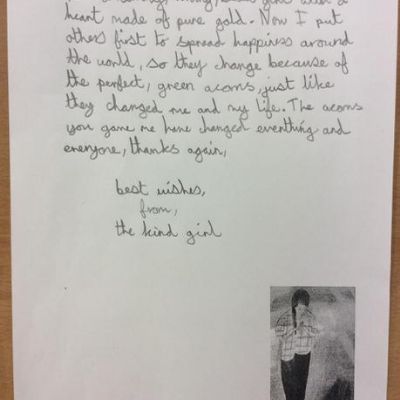 girl with a
heart made of pure gold. Now I put
others first to spread happiness around
the world, so they change because of
the perfect, green acorns, just like
they changed me and my life. The acorns
you game me have changed everthing and
everyone, thanks again,
best wishes,
from,
the kind girl